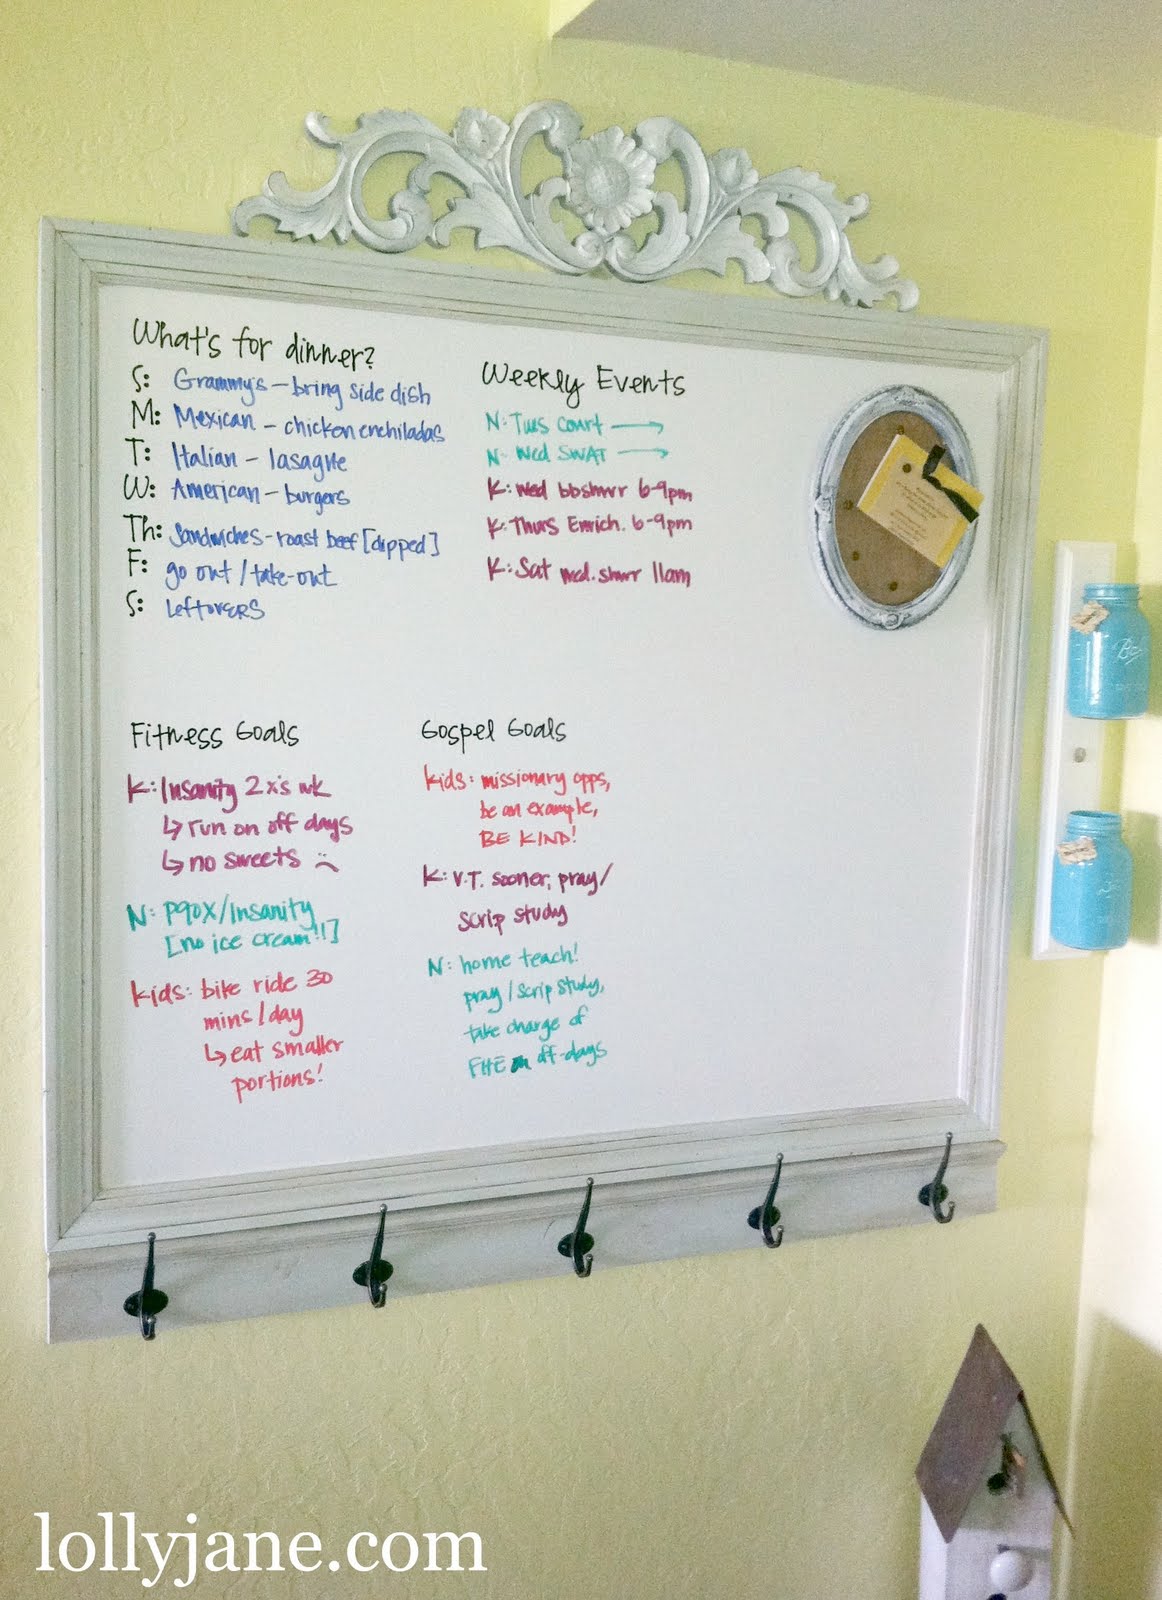 What's for dinner?
S: Grammy's - bring side dish
M: Mexican - chicken enchiladas
T: Italian - lasagne
W: American - burgers
Th: Sandwiches - roast beef [dipped]
F: go out / take-out
S: Leftovers
Weekly Events
N: Tues Court →
N: Wed SWAT →
K: Wed bbshwr 6-9pm
K: Thurs Enrich. 6-9pm
K: Sat wed. shwr 11am
Fitness Goals
K: Insanity 2x's wk
↳ run on off days
↳ no sweets :(
N: P90X/Insanity
[no ice cream!!]
kids: bike ride 30
mins/day
↳ eat smaller
portions!
Gospel Goals
kids: missionary opps,
be an example,
BE KIND!
K: V.T. sooner, pray/
scrip study
N: home teach!
pray/scrip study,
take charge of
FHE on off-days
Ball
lollyjane.com